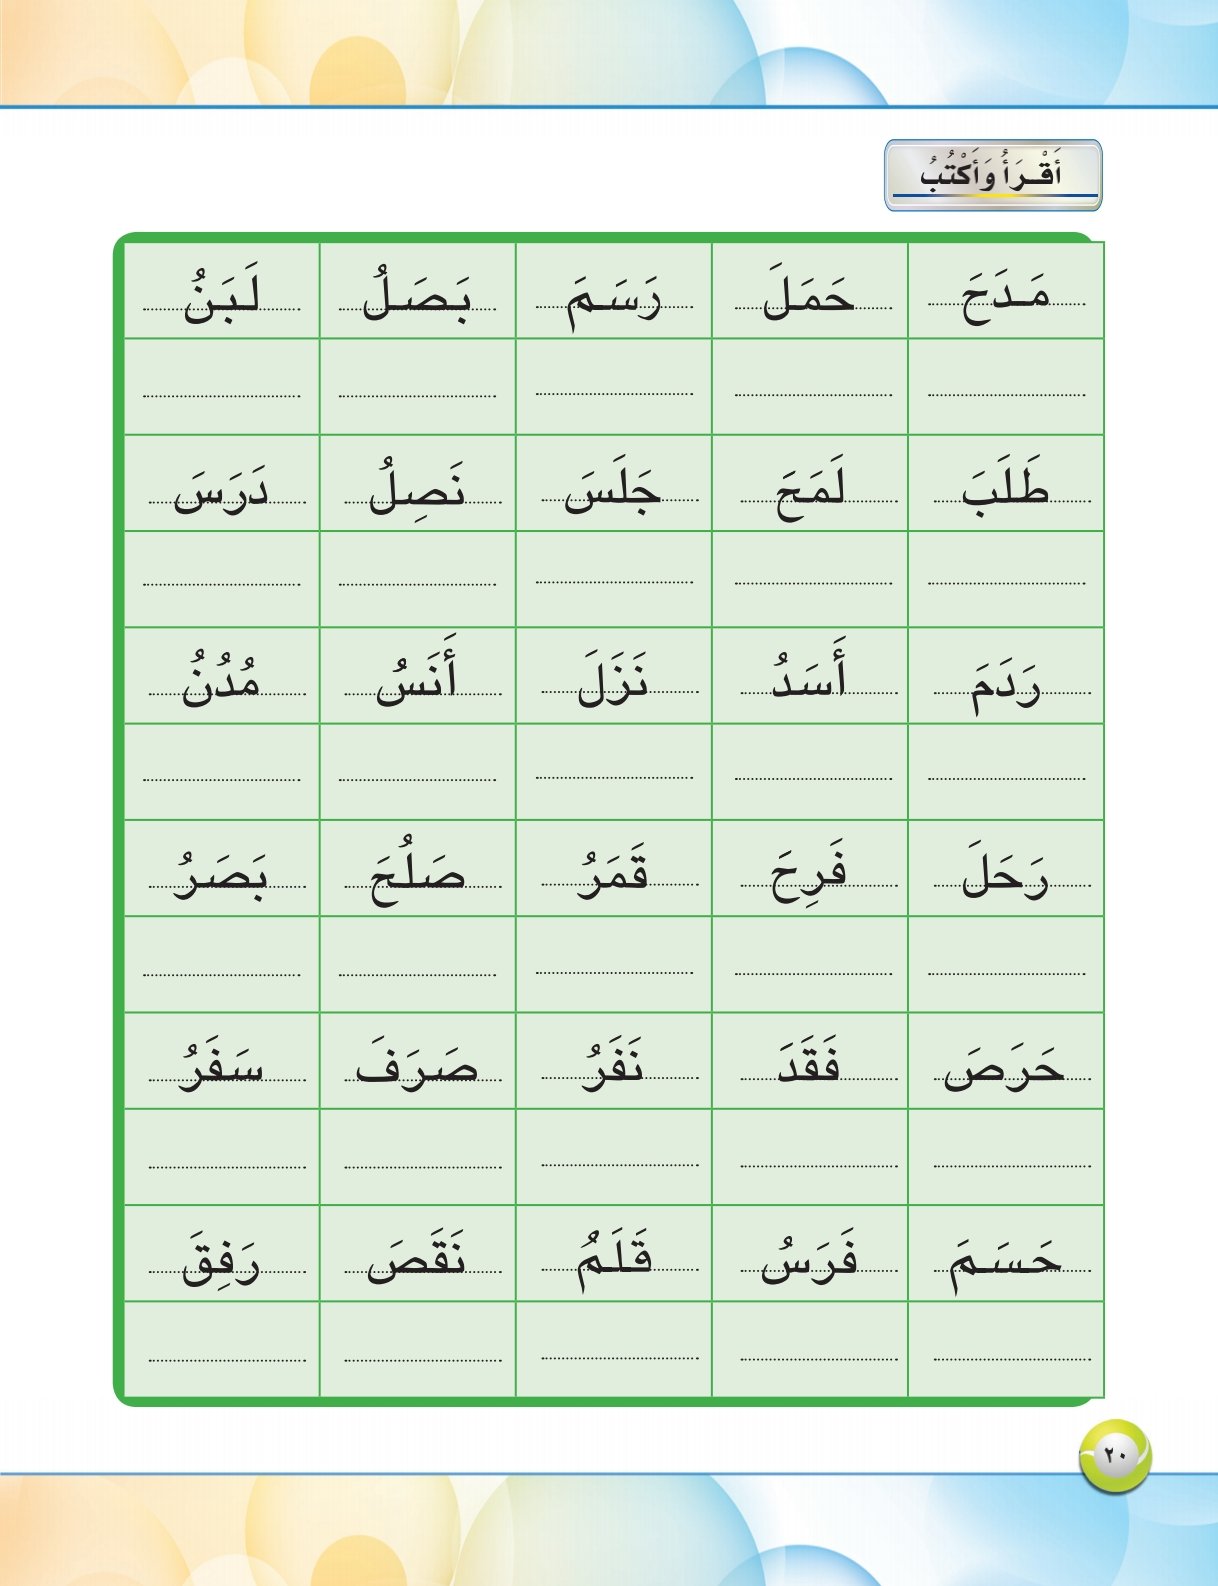 أَقْـرَأُ وَأَكْتُبُ
مَـدَحَ حَمَـلَ رَسَـمَ بَـصَـلُ لَـبَـنُ
طَلَبَ لَمَحَ جَلَسَ نَصِلُ دَرَسَ
رَدَمَ أَسَدُ نَزَلَ أَنَسُ مُدُنُ
رَحَلَ فَرِحَ قَمَرُ صَلُحَ بَصَرُ
حَرَصَ فَقَدَ نَفَرُ صَرَفَ سَفَرُ
حَـسَـمَ فَرَسُ قَلَـمُ نَقَصَ رَفِقَ
٢٠